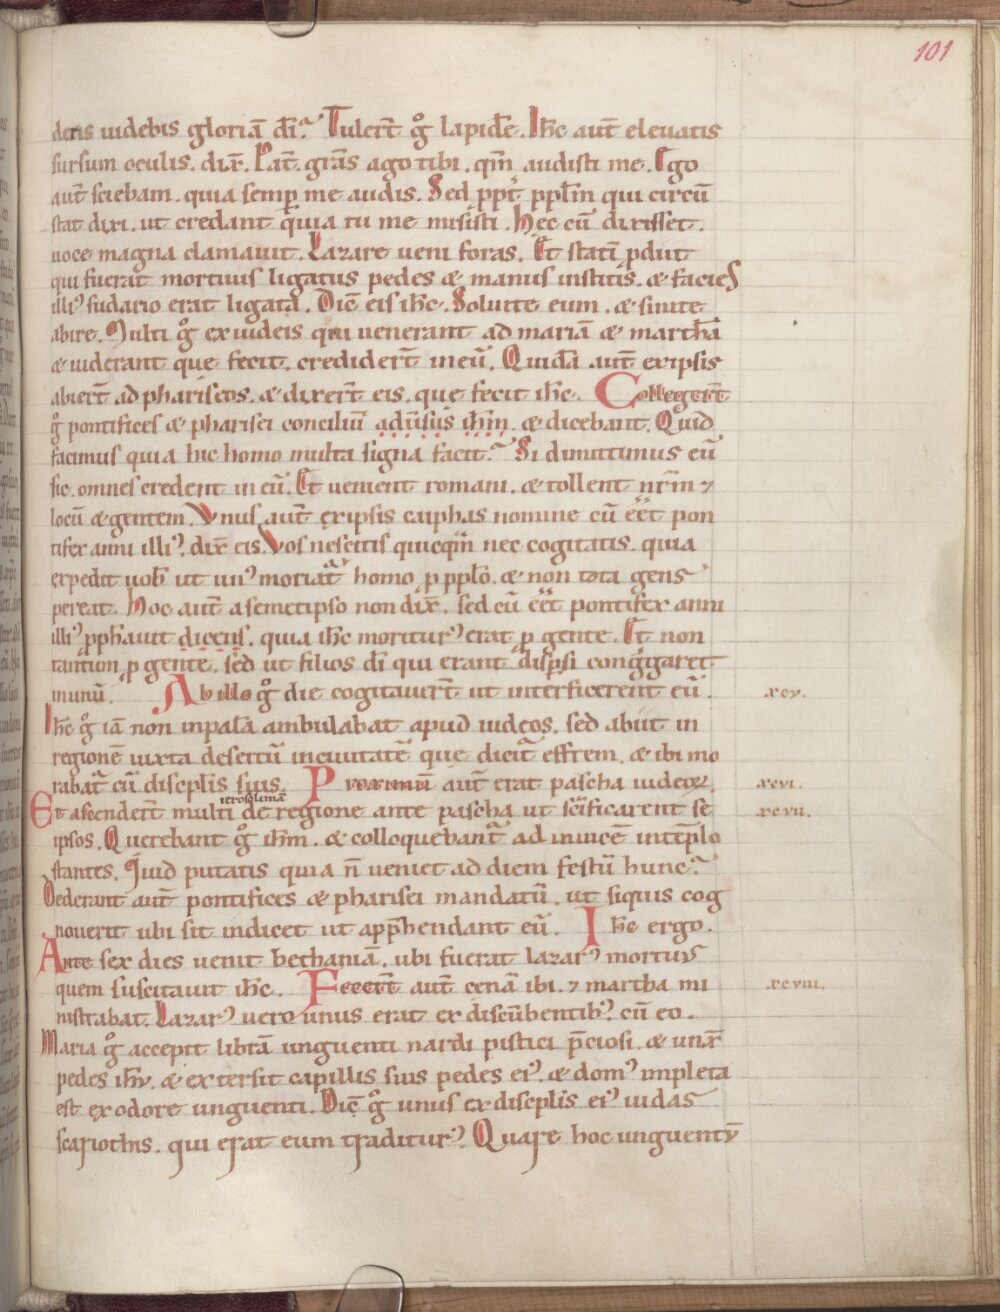 101
deris uidebis gloriā dı̄? Tulert̄ gͦ lapidē. Ihc̄ aut̄ eleuatis
sursum oculis. dix̄. Pat̄. grās ago tibi. qm̄ audisti me. Ego
aut̄ sciebam. quia semp̱ me audis. Sed ppt̄ pplm̄ qui circū
stat dixi. ut credant quia tu me misisti. Hec cū dixisset.
uoce magna clamauit. Lazare ueni foras. Et stati ꝓdiit
qui fuerat mortuus ligatus pedes & manus institis. & facies
illiꝰ sudario erat ligata. Dic̄ eis ihc̄. Soluite eum. & sinite
abire. Multi gͦ ex iudeis qui uenerant ad mariā & marthā
& uiderant que fecit. credidert̄ in eū. Quidā aut̄ ex ipsis
abiert̄ ad phariseos. & dixert̄ eis. que fecit ihc̄. Collegert̄
gͦ pontifices & pharisei conciliū aduersus ihm̄. & dicebant. Quid
facimus quia hic homo multa signa facit? Si dimittimus eū
sic. omnes credent in eū. Et uenient romani. & tollent nrm̄ ⁊
locū & gentem. Vnus aut̄ ex ipsis caiphas nomine cū eēt pon
tifex anni illiꝰ. dix̄ eis. Vos nescitis quicqm̄ nec cogitatis. quia
expedit uob̄ ut unꝰ moriat̄ homo ꝓ pplo. & non tota gens
pereat. Hoc aut̄ a semetipso non dix̄. sed cū eēt pontifex anni
illiꝰ pphauit dicens. quia ihc̄ moriturꝰ erat ꝓ gente. Et non
tantum ꝓ gente. sed ut filios dı̄ qui erant dispsi congregaret
in unū. Ab illo gͦ die cogitauert̄ ut interficerent eū. xcv.
Ihc̄ gͦ iā non in palā ambulabat apud iudeos. sed abiit in
regionē iuxta desertū in ciuitatē que dicit̄ effrem. & ibi mo
rabat̄ cū disciplis suis. Proximū aut̄ erat pascha iudeoꝝ. xcvi.
Et ascendert̄ multi ierosolimā de regione ante pascha ut scīficarent se xcvii.
ipsos. Querebant gͦ ihm̄. & colloquebant̄ ad inuicē in teplo
stantes. Quid putatis quia n̄ ueniet ad diem festū hunc?
Dederant aut̄ pontifices & pharisei mandatū. ut siquis cog
nouerit ubi sit indicet ut app̄hendant eū. Ihc̄ ergo.
Ante sex dies uenit bethaniā. ubi fuerat lazarꝰ mortuus
quem suscitauit ihc̄. Fecert̄ aut̄ cenā ibi. ⁊ martha mi xcviii.
nistrabat. Lazarꝰ uero unus erat ex discūbentibꝰ cū eo.
Maria gͦ accepit librā unguenti nardi pistici p̄ciosi. & unx̄
pedes ihu. & extersit capillis suis pedes eiꝰ. & domꝰ impleta
est ex odore unguenti. Dic̄ gͦ unus ex disciplis eiꝰ iudas
scariothis. qui erat eum traditurꝰ. Quare hoc unguentū